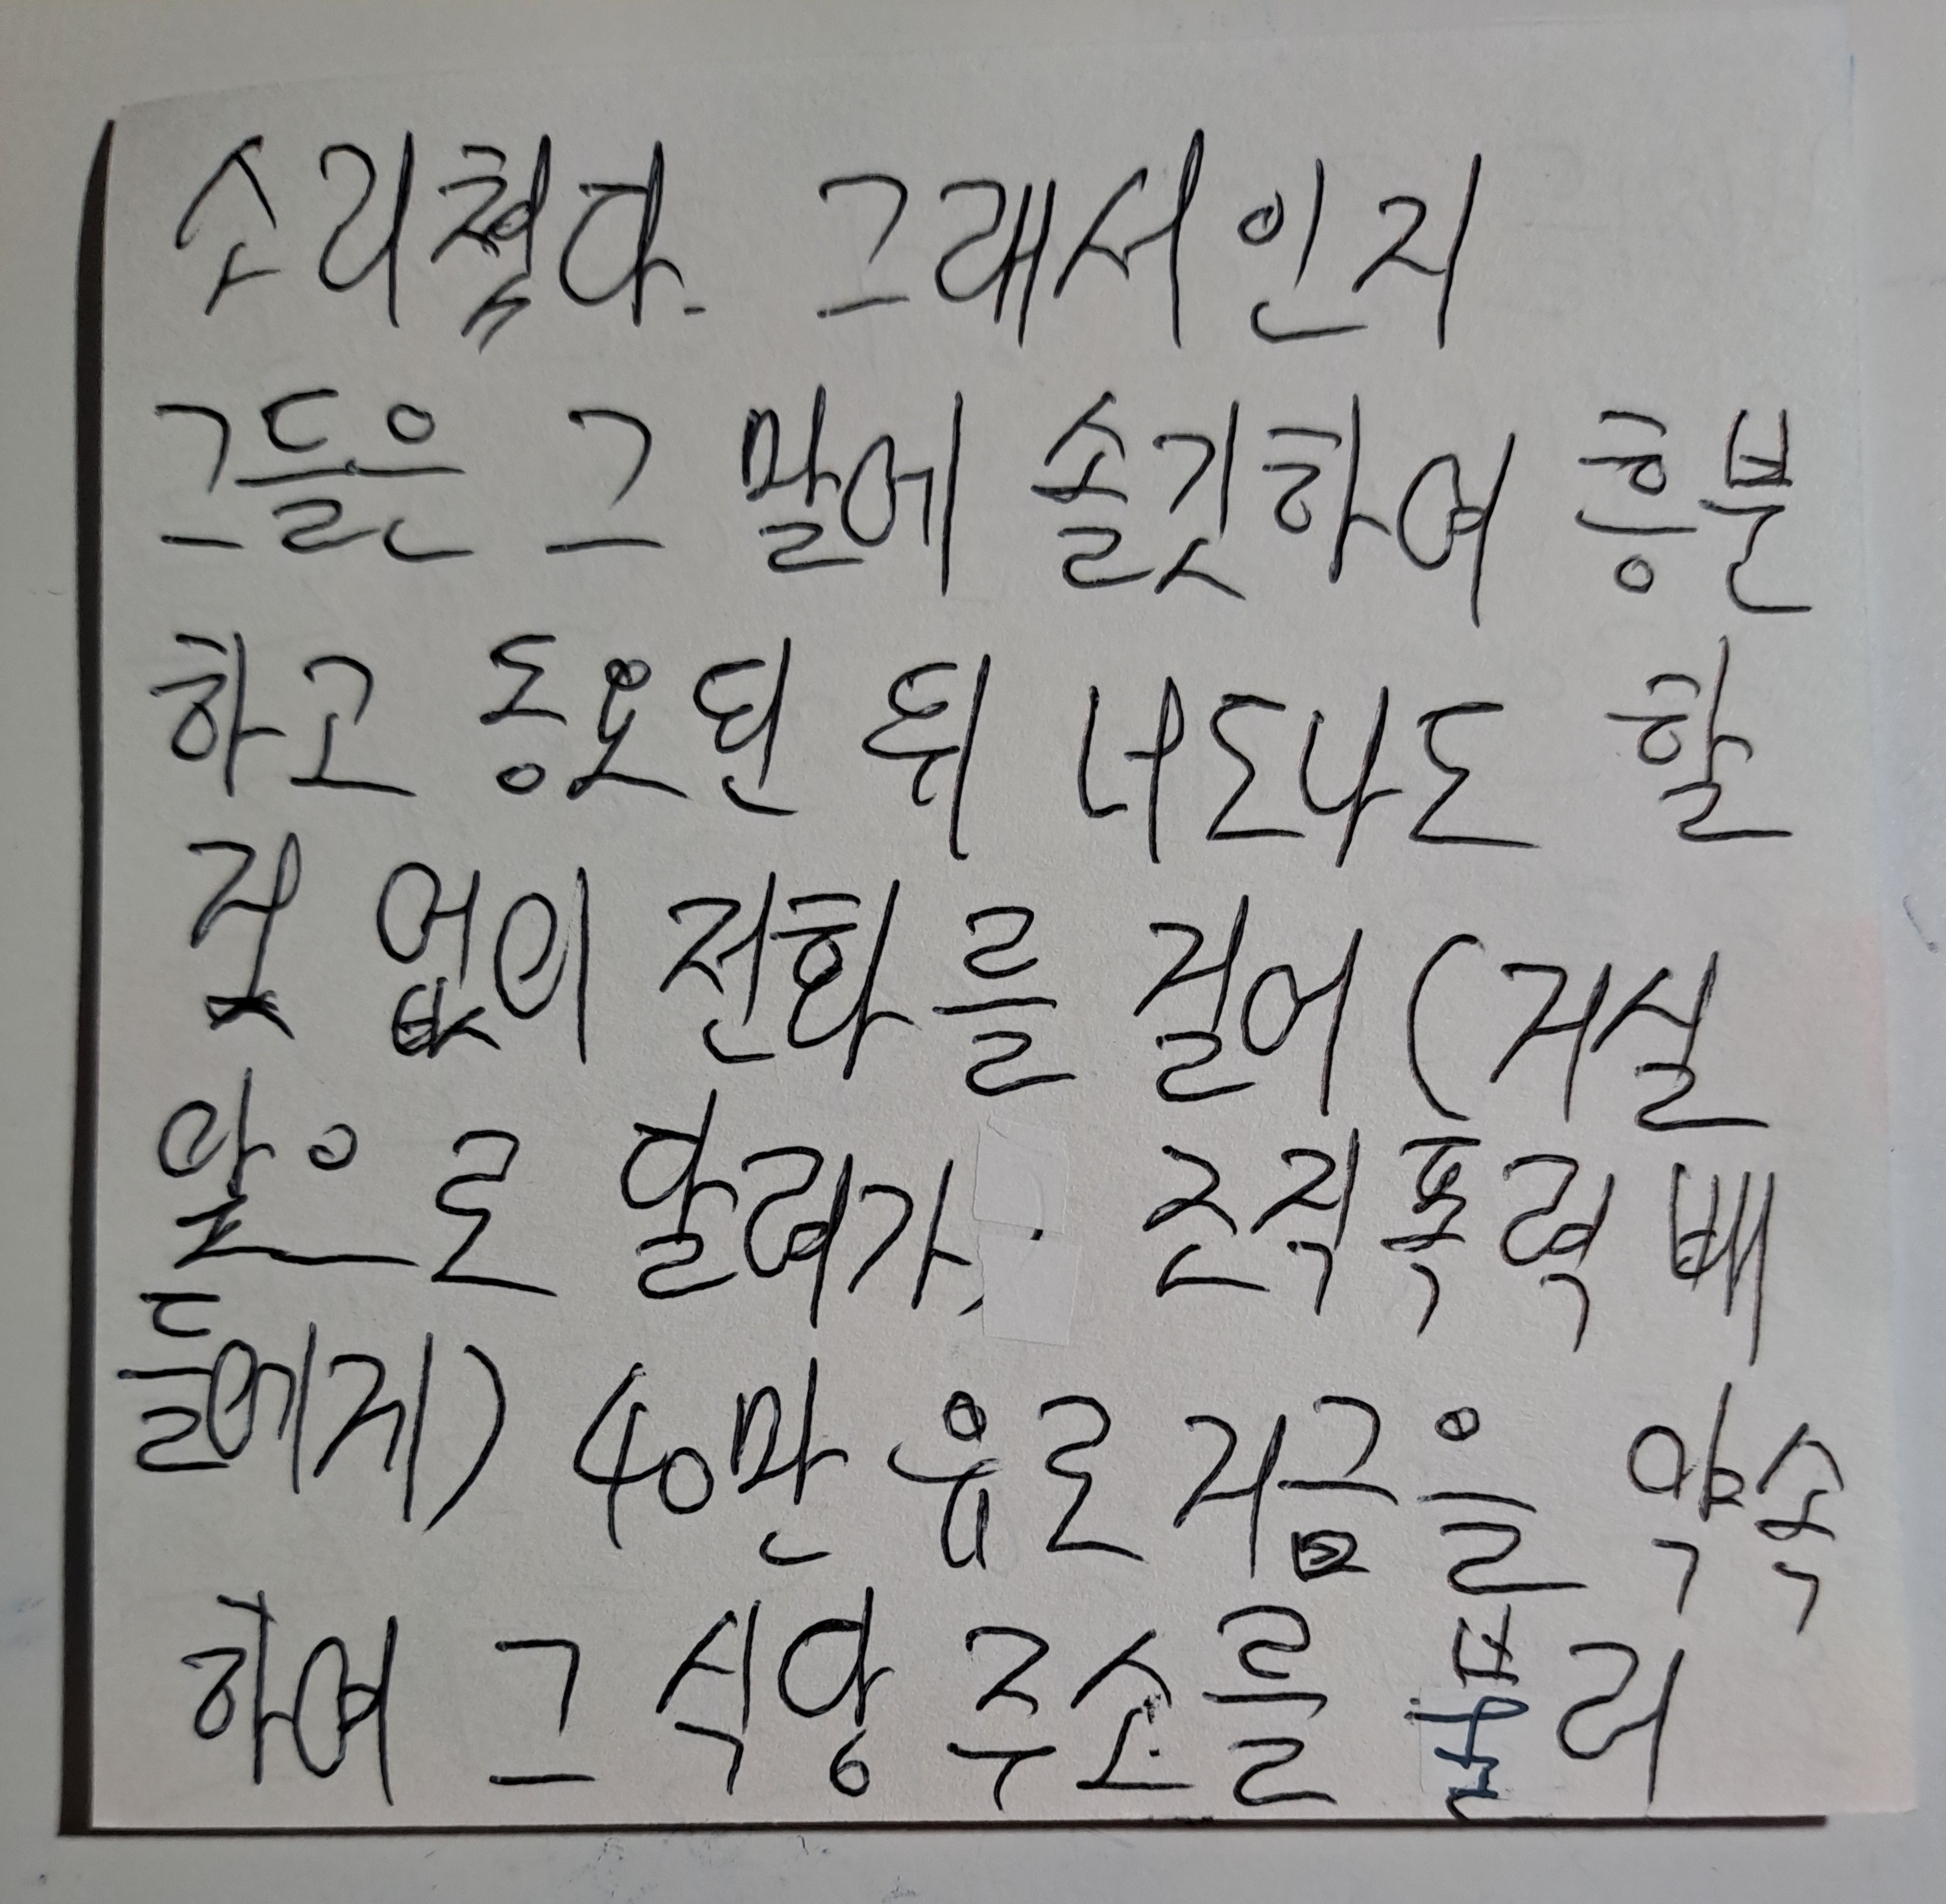 소리쳤다. 그래서인지
그들은 그 말에 솔깃하여 흥분
하고 동요된 뒤 너도나도 할
것 없이 전화를 걸어 (거실
앞으로 달려가, 조직폭력배
들에게) 40만 유로 거금을 약속
하여 그 식당 주소를 불러